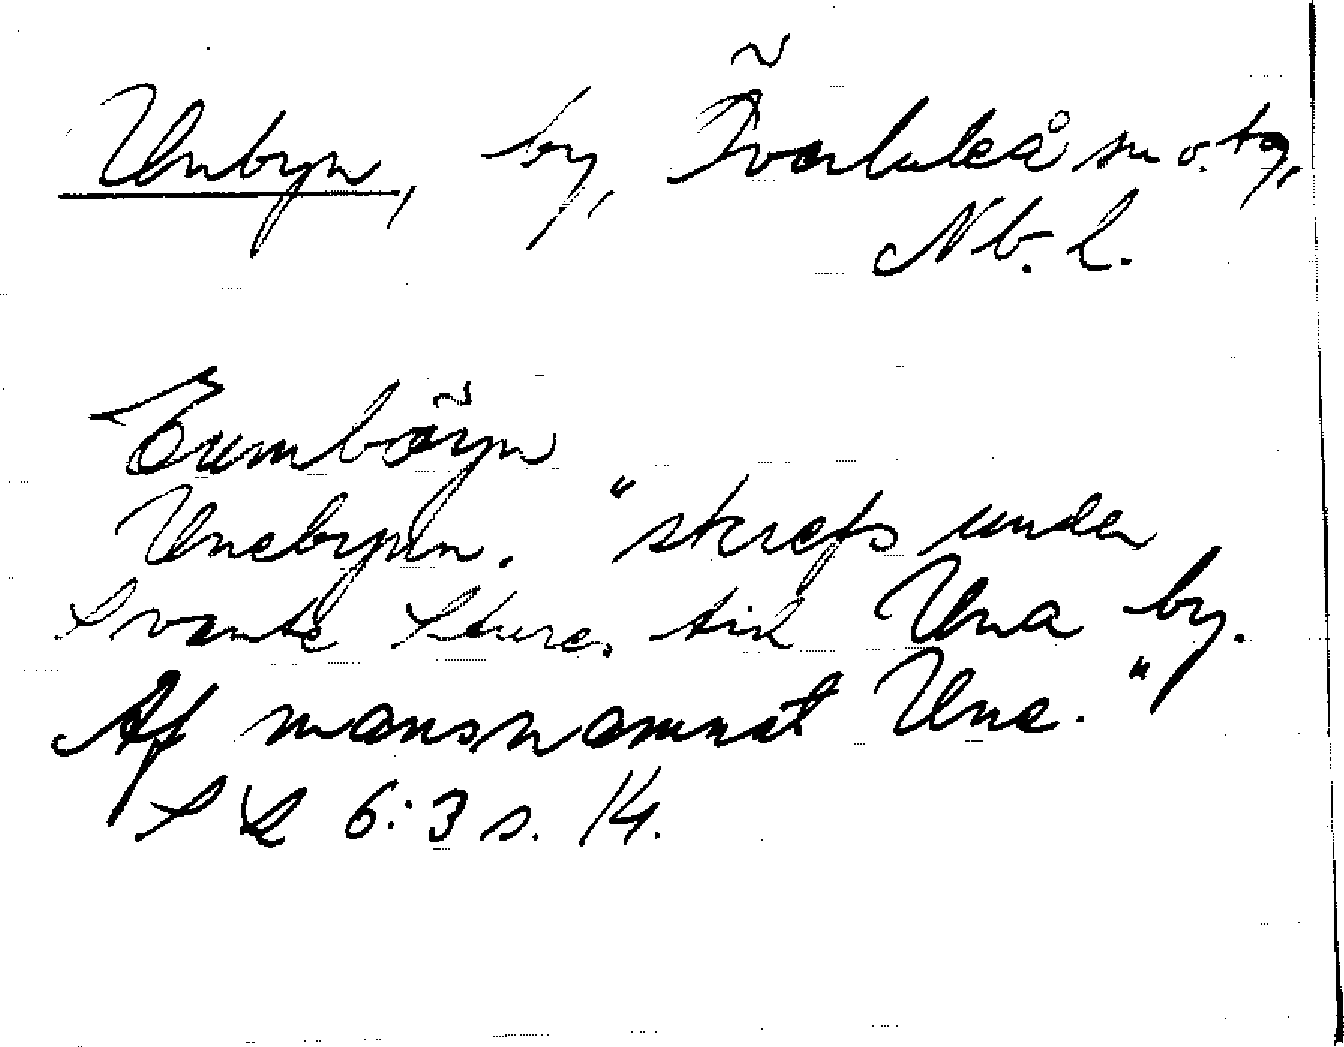 Unbyn, by, Överluleå sn o. tg,
Nb. l.
Eumböyn
Unebynn. "skrefs under
Svante Sture. till Una by.
Af mansnamnet Une."
SL 6:3 s. 14.